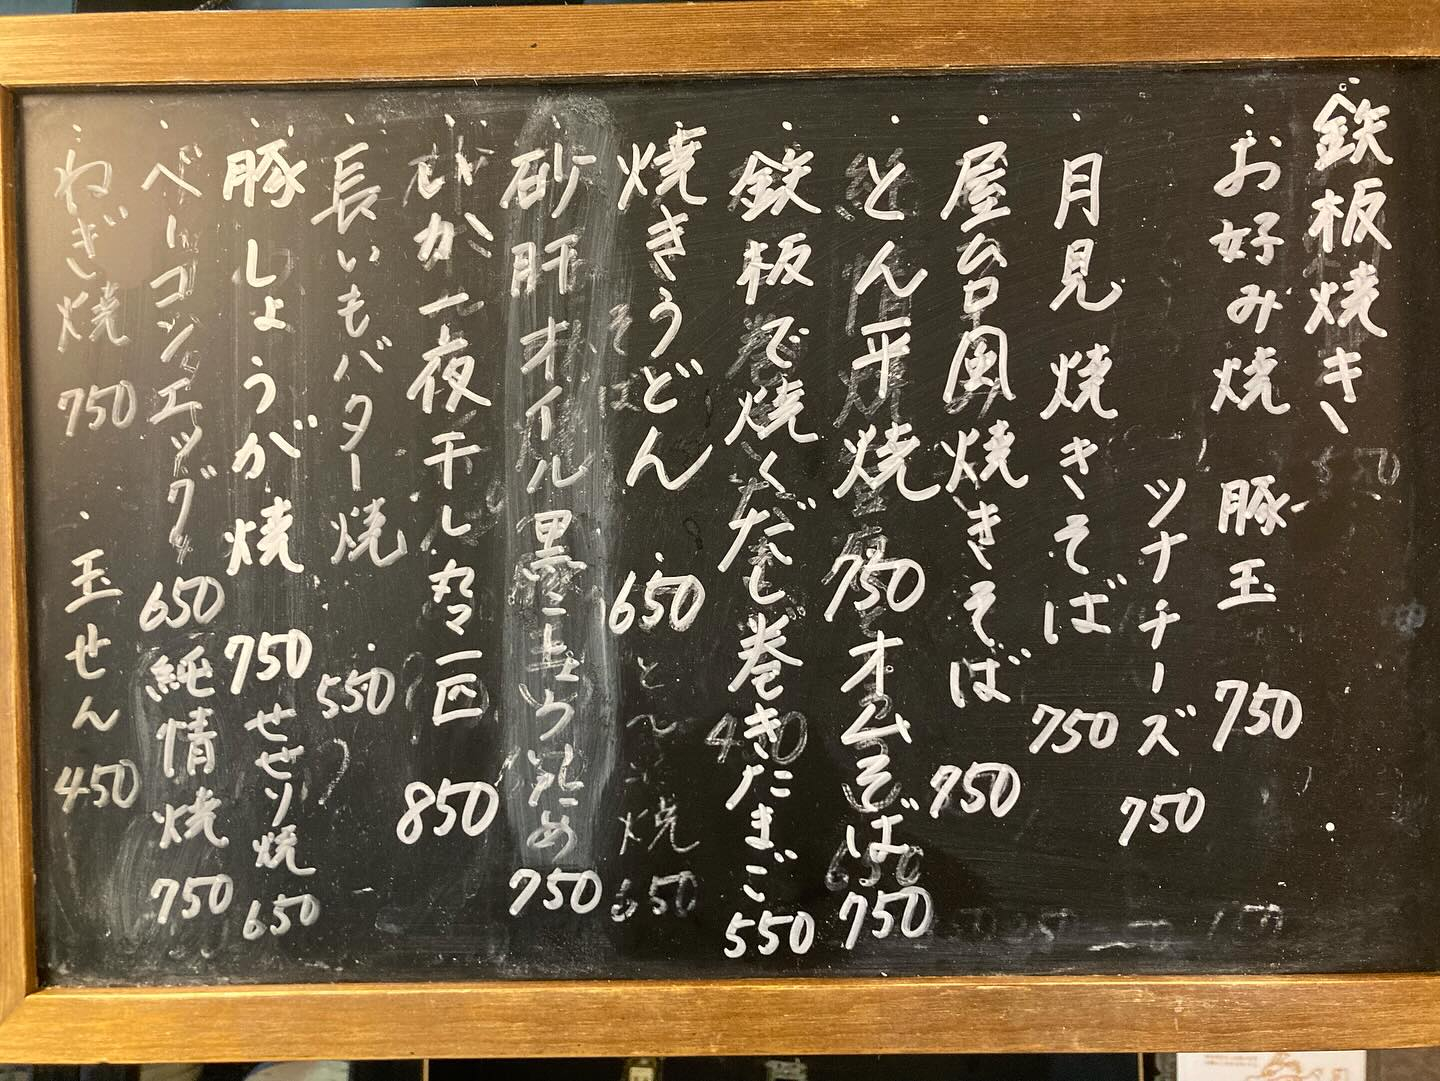 鉄板焼き
お好み焼 豚玉 750
ツナチーズ 750
月見焼きそば 750
屋台風焼きそば 750
とん平焼 750
オムそば 750
鉄板で焼くだし巻きたまご 550
焼きうどん 650
砂肝オイル黒こしょう炒め 750
いか一夜干し丸々一匹 850
長いもバター焼 550
豚しょうが焼 750
せせり焼 650
ベーコンエッグ 650
純情焼 750
ねぎ焼 750
玉せん 450